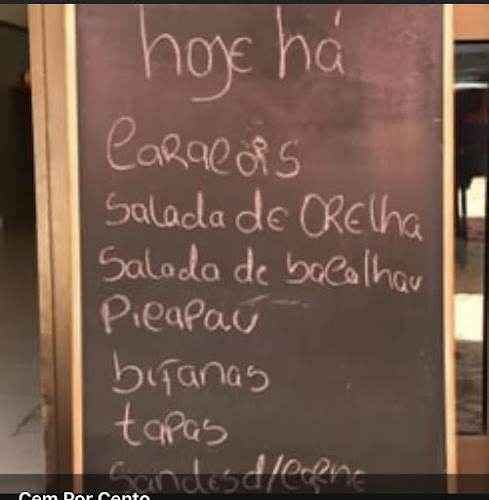 hoje há
Caracóis
Salada de ORElha
Salada de bacalhau
Picapau
bifanas
tapas
Sandes d/carne
Cem Por Cento